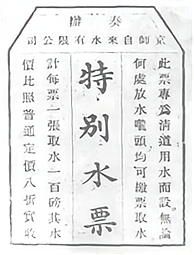 奏辦
京師自來水有限公司
此票專為清道用水而設無論
何處放水龍頭均可繳票取水
特別水票
計每票一張取水一百磅其水
價比照普通定價八折實收